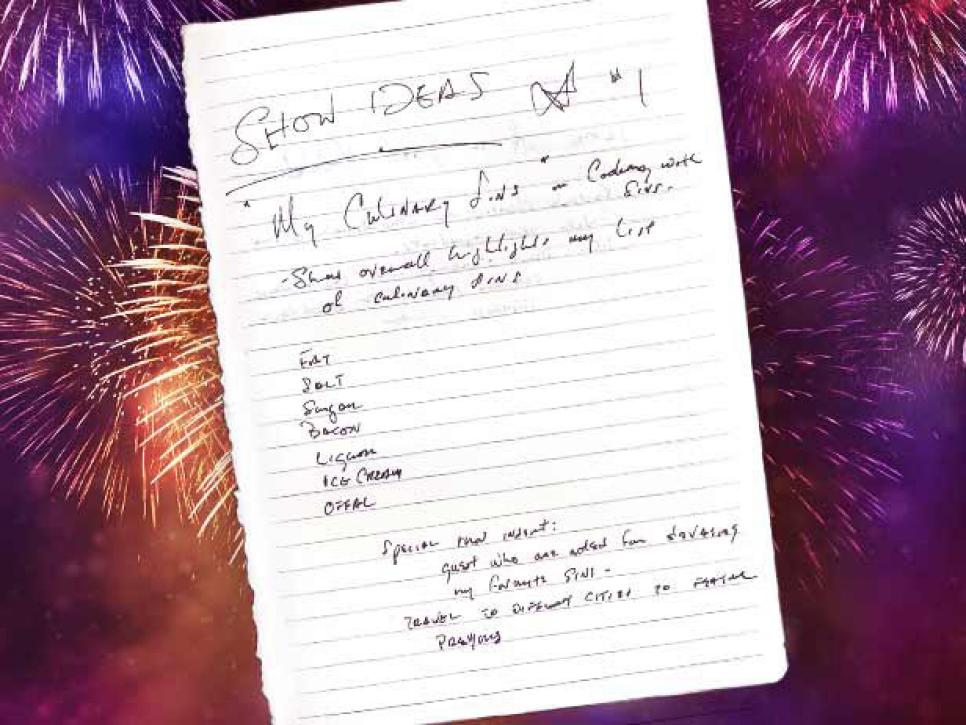 SHOW IDEAS #1
"My Culinary Sins" - Cooking with
Sins.
- Show overall highlights my list
of culinary sins
FAT
SALT
Sugar
BACON
Liquor
ICE CREAM
OFFAL
Special
guest who are noted for
my favorite sins -
TRAVEL TO DIFFERENT CITIES TO FEATURE